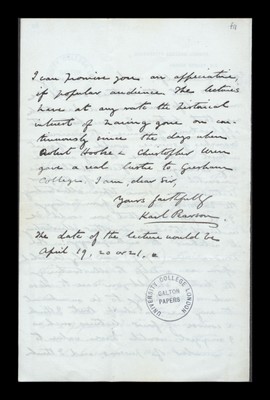 I can promise you an appreciative,
if popular audience. The lectures
have at any rate the historical
interest of having gone on con-
tinuously since the days when
Robert Hooke & Christopher Wren
gave a real lustre to Gresham
College. I am, dear Sir,
Yours faithfully
Karl Pearson
The date of the lecture would be
April 19, 20 or 21.
UNIVERSITY COLLEGE LONDON
GALTON
PAPERS